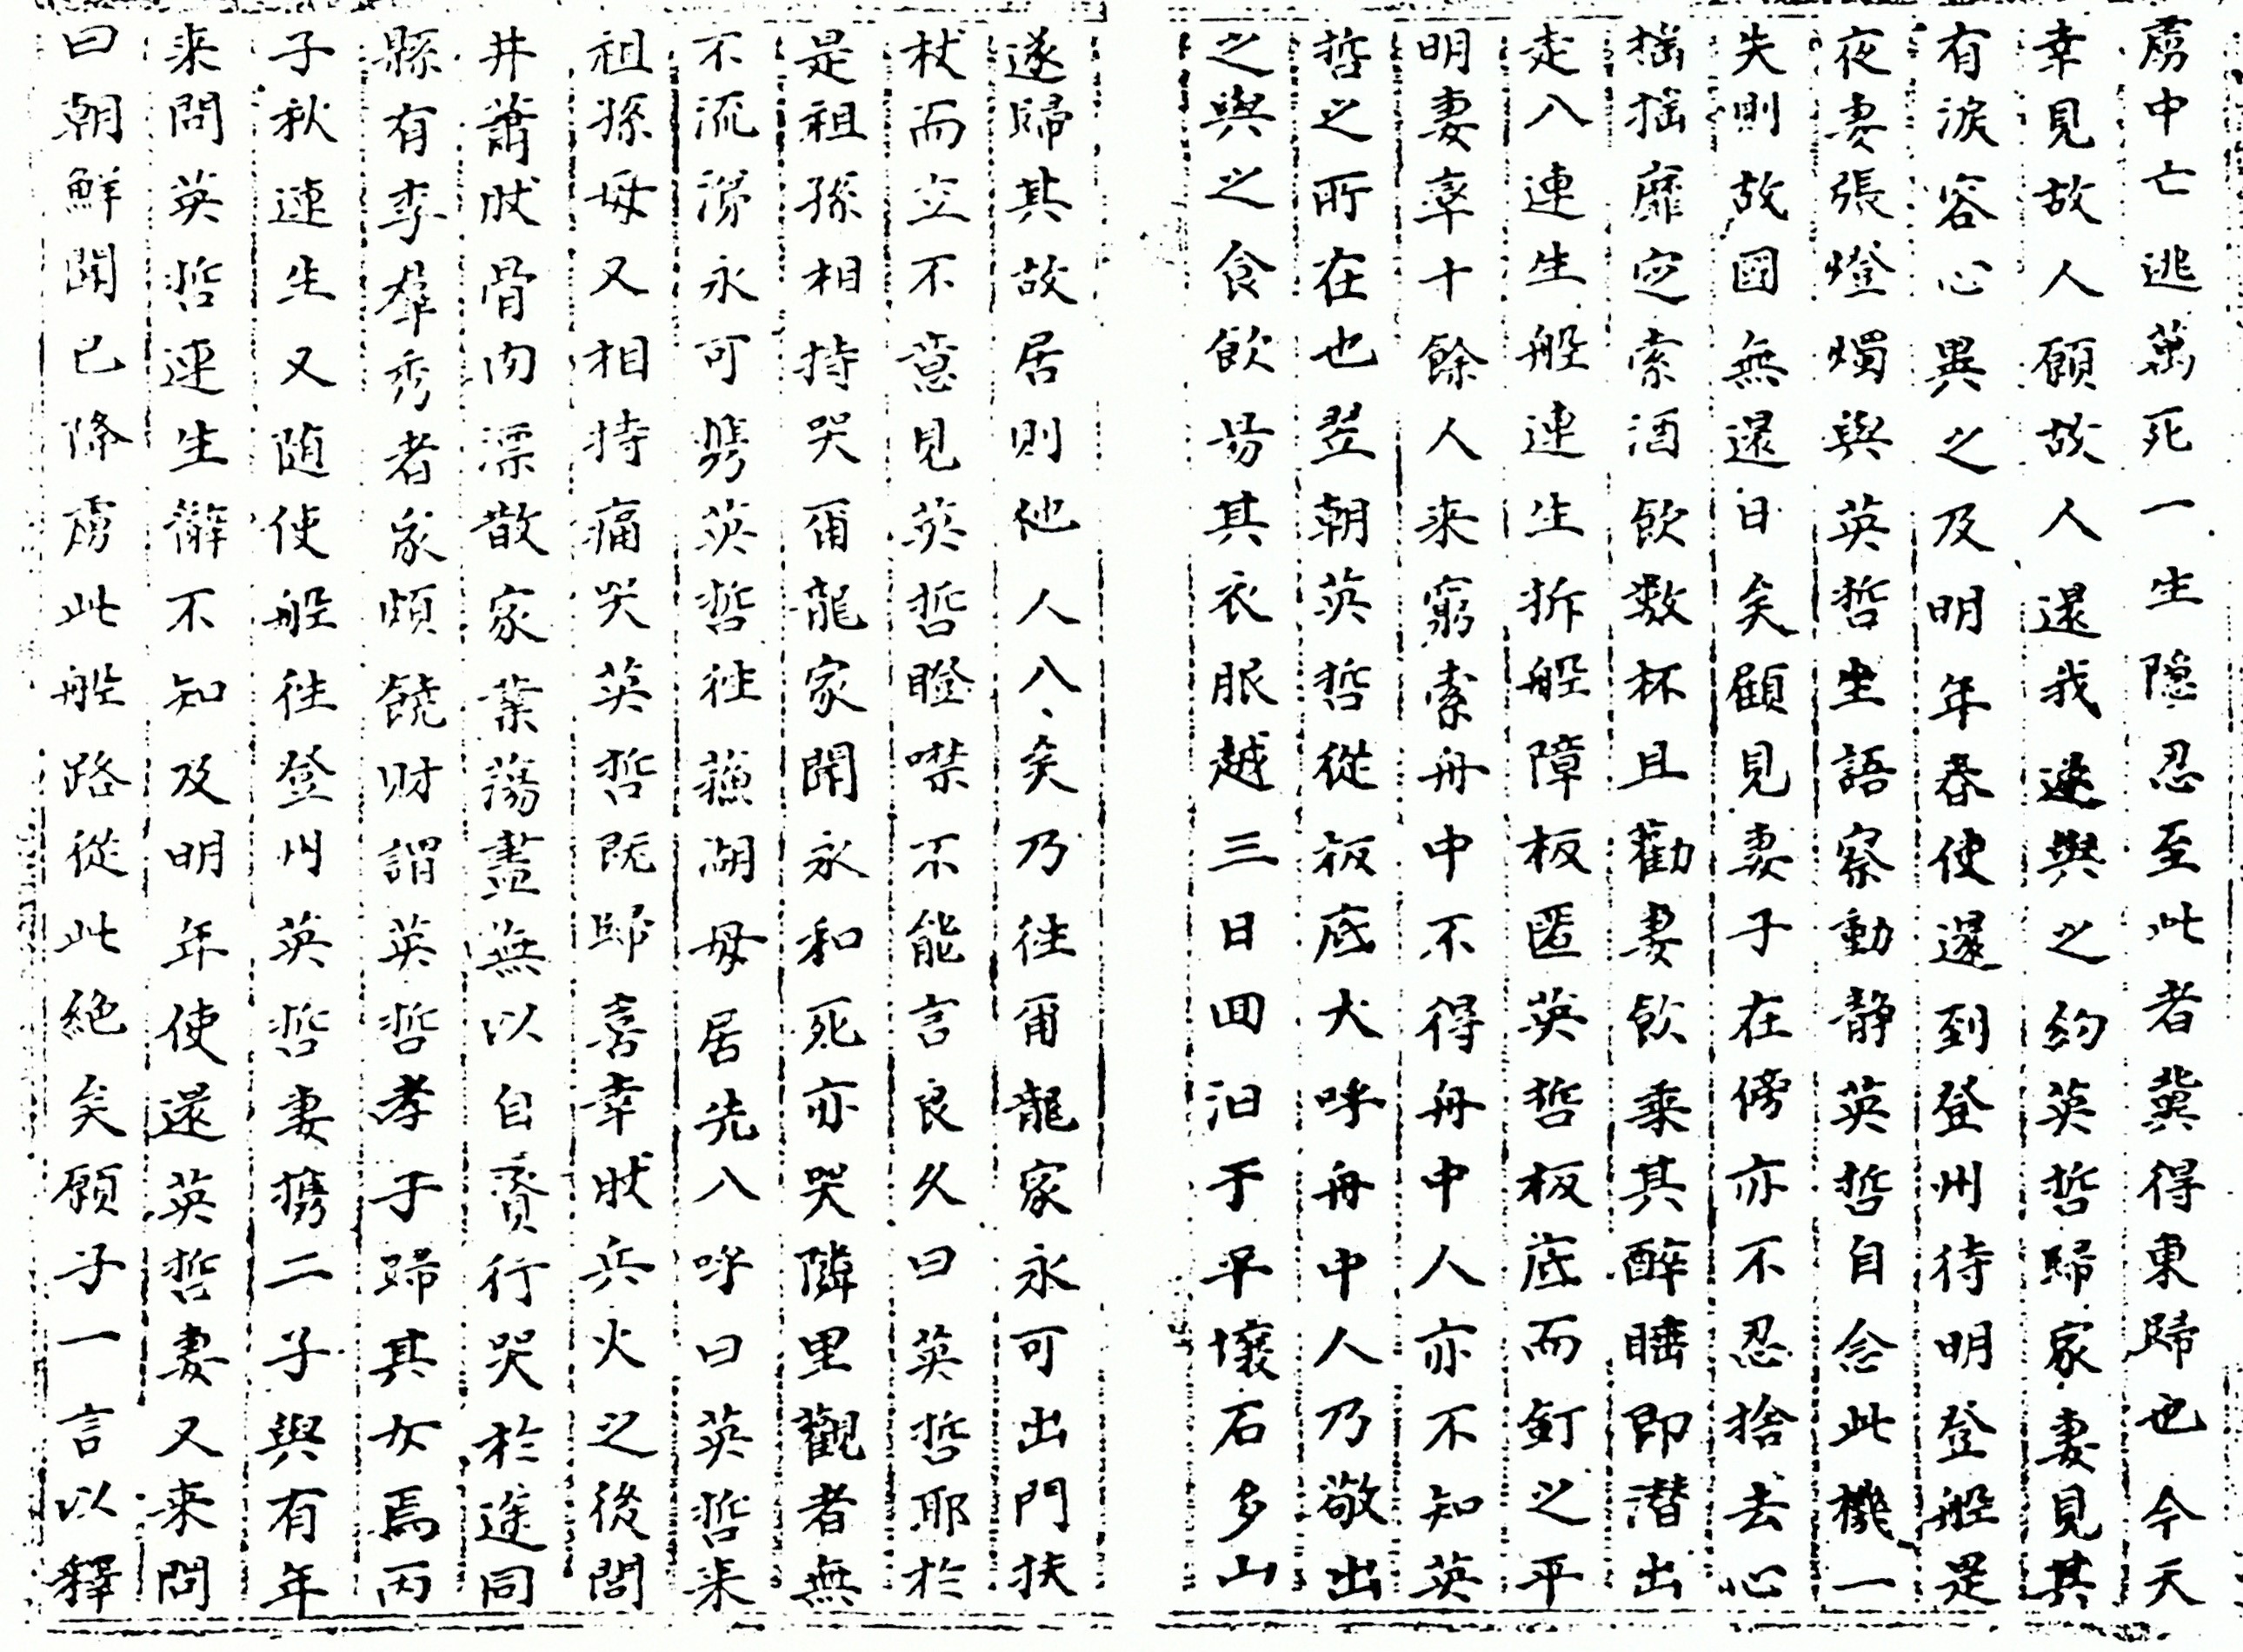 虜中亡逃萬死一生隱忍至此者冀得東歸也今天
幸見故人願故人還我連與之約英哲歸家妻見其
有淚容心異之及明年春使還到登州待明登船是
夜妻張燈燭與英哲坐語察動静英哲自念此機一
失則故國無還日矣顧見妻子在傍亦不忍捨去心
搖搖靡定索酒飲數杯且勸妻飲乘其醉睡即潜出
走入連生船連生拆船障板匿英哲板底而釘之平
明妻率十餘人来窮索舟中不得舟中人亦不知英
哲之所在也翌朝英哲從板底大呼舟中人乃敬出
之與之食飲昜其衣服越三日回泊于平壤石多山
遂歸其故居則他人入、矣乃往爾龍家永可出門扶
杖而立不意見英哲瞪噤不能言良久曰英哲耶於
是祖孫相持哭爾龍家聞永和死亦哭隣里觀者無
不流涕永可携英哲徃蘓湖母居先入呼曰英哲来
祖孫母又相持痛哭英哲既歸喜幸状兵火之後閭
井蕭状骨肉漂散家業蕩盡無以自資行哭於途同
縣有李羣秀者家頗饒財謂英哲孝子歸其女焉丙
子秋連生又随使船徃登州英哲妻携二子與有年
来問英哲連生辭不知及明年使還英哲妻又来問
曰朝鮮聞已降虜此船路從此絶矣願子一言以釋